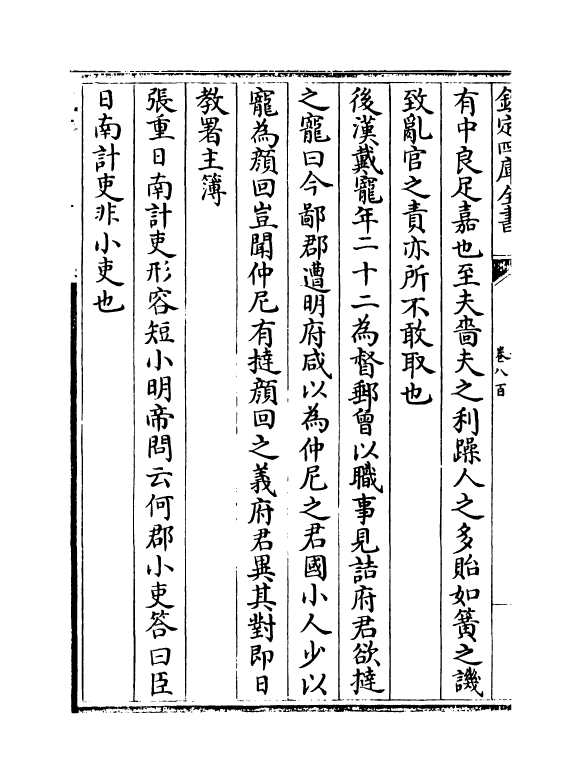 欽定四庫全書
卷八百
有中良足嘉也至夫嗇夫之利躁人之多貽如簧之譏
致亂官之責亦所不敢取也
後漢戴寵年二十二為督郵曾以職事見詰府君欲撻
之寵曰今鄙郡遭明府咸以為仲尼之君國小人少以
寵為顔回豈聞仲尼有撻顔回之義府君異其對即日
教署主簿
張重日南計吏形容短小明帝問云何郡小吏答曰臣
日南計吏非小吏也